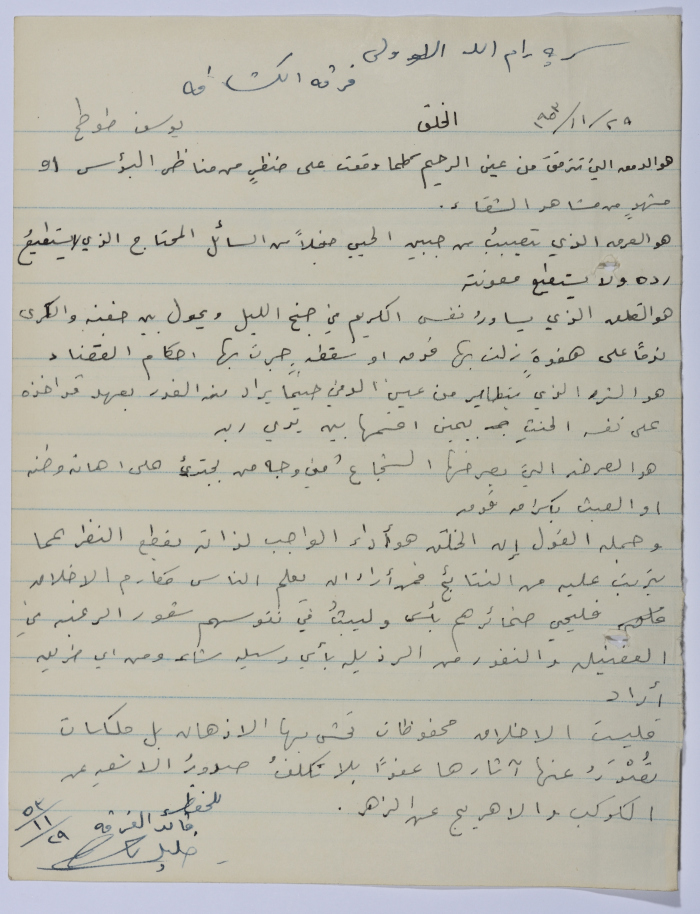 سرية رام الله الأولى
فرقة الكشافة
يوسف طوطح
الخلق
٢٩/١١/٩٥٣
هو الدمعة التي تترقرق من عين الرحيم كلما وقعت على منظرٍ من مناظر البؤس او
مشهدٍ من مشاهد الشقاء .
هو العرق الذي يتصبب من جبين الحيي خجلاً من السائل المحتاج الذي لا يستطيع
رده ولا يستطيع معونته
هو القلق الذي يساور نفس الكريم في جنح الليل ويحول بين جفنه والكرى
ندمًا على هفوةٍ زلت بها قدمه او سقطة جرت بها احكام القضاء
هو الشرر الذي يتطاير من عين الوفي حينما يراد منه الغدر بعهد قد اخذه
على نفسه الحنث بيمين اقسمها بين يدي ربه
هو الصرخة التي يصرخها الشجاع في وجه من يجترئ على اهانة وطنه
او العبث بكرامة قومه
وجملة القول إن الخلق هو أداء الواجب لذاته بقطع النظر عما
يترتب عليه من النتائج فمن أراد ان يعلم الناس مكارم الاخلاق
فليحي ضمائرهم وليبث في نفوسهم شعور الرغبة في
الفضيلة والنفور من الرذيلة بأي وسيلة شاء ومن اي طريق
أراد
فليست الاخلاق محفوظات تحشى بها الاذهان بل ملكات
تصدر عنها آثارها عفوًا بلا تكلف صدور الاشعة عن
الكوكب والاريج عن الزهر .
للحفظ
قائد الفرقة
خليل
٢٩/١١/٥٣